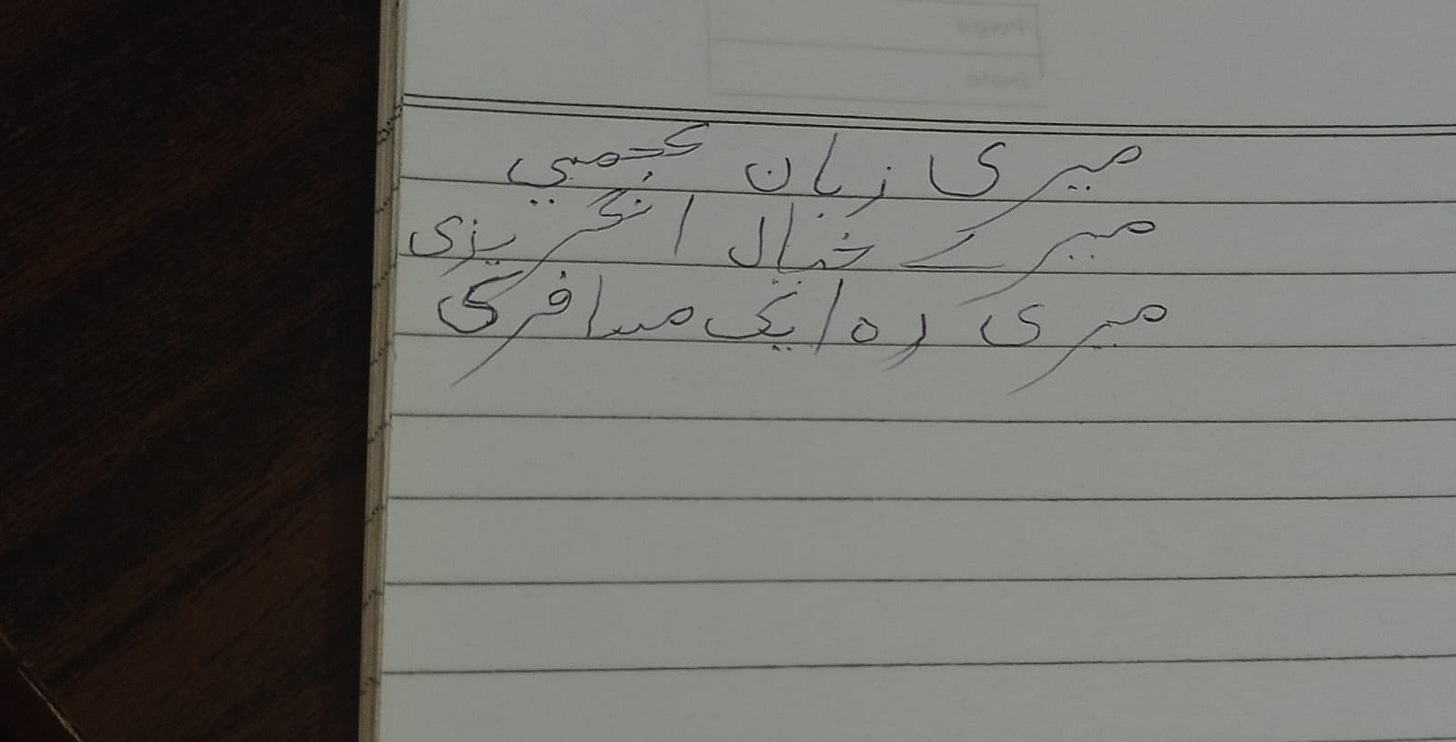 میری زبان عجمي
میرے خیال انگریزی
میری رہ ایک مسافر کی